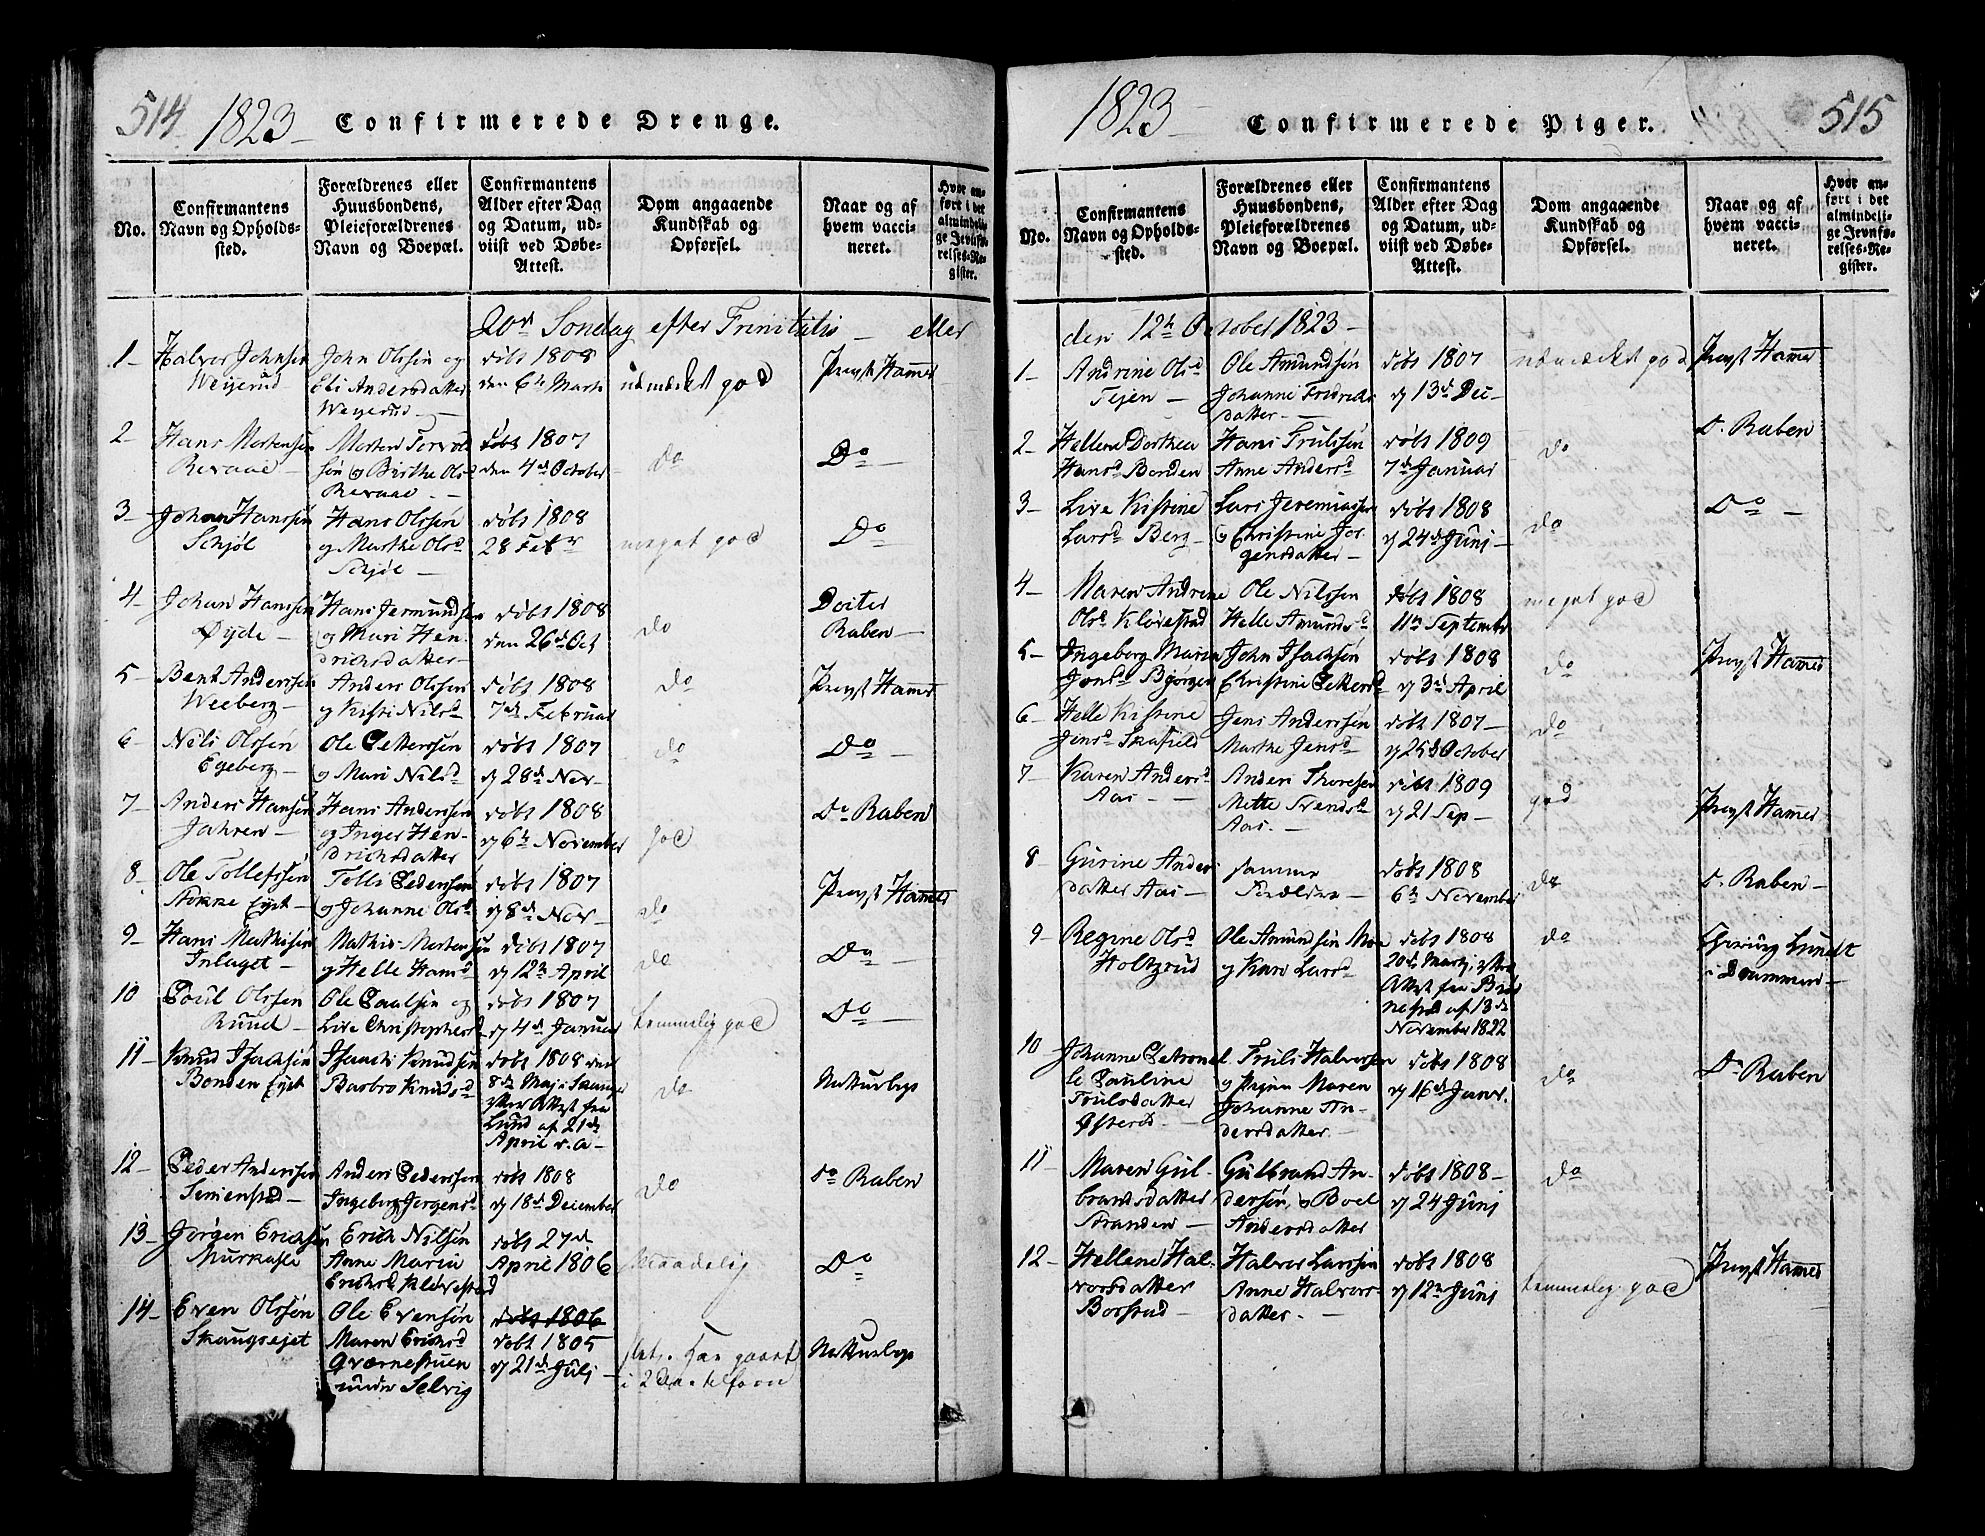 514
1823
Confirmerede Drenge.
No.
Confirmantens
Navn og Opholds-
sted.
Forældrenes eller
Huusbondens,
Pleieforældrenes
Navn og Boepæl.
Confirmantens
Alder efter Dag
og Datum, ud-
viist ved Døbe-
Attest.
Dom angaaende
Kundskab og
Opførsel.
Naar og af
hvem vacci-
neret.
Hvor an-
ført i det
almindeli-
ge Jevnfø-
relses-Re-
gister.
20de Sondag efter Trinitatis - eller
1 -
Halvor Johnsen
Weyerud
John Olssøn og
Eli Andersdatter
Weyerud -
døbt 1808
den 6te Marts
udmærket god
Provst Hamer
2 -
Hans Mortensen
Revaae -
Morten Torvol
søn og Birthe Ols
Revaae -
døbt 1807
den 4de October
do
Do -
3 -
Johan Hanssøn
Schjøl
Hans Olssøn
og Marthe Olsd
Schjøl -
døbt 1808
28 Febr
meget god
Do -
4 -
Johan Hanssøn
Øyde -
Hans Jermundsen
og Mari Hen-
drichsdatter -
døbt 1808
den 26de Oct
do
Docter
Raben -
5 -
Bent Anderssen
Weeberg -
Anders Olssen
og Kisti Nilsd
døbt 1808
7de Februar
do
Provst Hamer
6 -
Nils Olssøn
Egeberg -
Ole Pettersen
og Mari Nilsd
døbt 1807
d 28de Nov -
do
Do -
7 -
Anders Hansen
Jahren -
Hans Anderssen
og Inger Hen-
drichsdatter
døbt 1808
d 6te November
god
Dr Raben
8 -
Ole Tollefssøn
Stokke Eyet -
Tolle Pedersen
og Johanne Olsd
døbt 1807
d 8de Nov -
do
Provst Hamer
9 -
Hans Mathisøn
Inlaget -
Mathis Mortensen
og Helle Hansd
døbt 1807
d 12te April
do
Do -
10
Poul Olssøn
Rund -
Ole Paalsen og
Live Christophersd
døbt 1807
d 4de Januar
temmelig god
Do -
11 -
Knud Isachsøn
Bonden Eyet
Isaach Knudsen
Barbro Knudsd
døbt 1808 den
8de Maj i Skauge
efter Attest fra
Lund af 21de
April d. a -
do
Naturlige
12 -
Peder Anderssen
Semensted -
Anders Pederssen
Ingeborg Jorgensd
døbt 1808
d 18de December
do
Dr Raben
13 -
Jørgen Erichsen
Murkasse
Erich Nilsøn
Anne Maria
Erichsd Kløvestad
døbt 27de
April 1806
maadelig
Do -
14 -
Even Olssøn
Skaugsejet
Ole Evensøn
Maren Erichsd
Qværnestuen
under Selvig
døbt 1806
døbt 1805
d 21de Julj -
slet. har gaaet
Naturlige
1823
Confirmerede Piger.
515
No.
Confirmantens
Navn og Opholds-
sted.
Forældrenes eller
Huusbondens,
Pleieforældrenes
Navn og Boepæl.
Confirmantens
Alder efter Dag
og Datum, ud-
viist ved Døbe-
Attest.
Dom angaaende
Kundskab og
Opførsel.
Naar og af
hvem vacci-
neret.
Hvor an-
ført i det
almindeli-
ge Jevnfø-
relses-Re-
gister.
den 12te October 1823 -
1 -
Andrine Olsd
Tejen -
Ole Amundsøn
Johanne Fredrichs
datter -
døbt 1807
d 13de Dec -
udmærket god
Provst Hamer
2 -
Hellene Dorthea
Hansd Bonden
Hans Trulssøn
Anne Andersd
døbt 1809
7de Januar
do
D. Raben
3 -
Live Kistine
Larsd Berg -
Lars Jeremiassen
og Christine Jør-
gensdatter -
døbt 1808
d 24de Junj -
do
Do -
4 -
Maren Andrine
Olsd Kløvestad
Ole Nilssen
Helle Amundsd
døbt 1808
11te September
meget god
5 -
Ingeborg Maria
Jonsd Bjørgen
John Isachsøn
Christine Pettersd
døbt 1808
d 3de April
do
Provst Hamer
6 -
Helle Kistine
Jensd Skafjeld
Jens Anderssøn
Marthe Jensd
døbt 1807 -
d 25de October
do
7 -
Karen Andersd
Aas -
Anders Thoresen
Mette Svendsd
Aas. -
døbt 1809
d 21 Sep -
god
Provst Hamer
8 -
Gurine Anders
datter Aas -
samme
Forældre -
døbt 1808
6te November
do
D. Raben -
9 -
Regine Olsd
Holtzrud
Ole Amundsøn Moe
og Kari Larsd
døbt 1808
20de Martj, efter
Attest fra Brag
nesed af 13de
November 1822
do
Chirurg Lundt
i Drammen -
10 -
Johanne Petronel
le Pauline
Trulsdatter
Østerud -
Truls Halvorsen
og Pigen Maren
Johanne An-
dersdatter -
døbt 1808
d 16de Janr.
do
Dr Raben
11 -
Maren Gul-
brandsdatter
Stranden -
Gulbrand An-
dersøn, og Boel
Andersdatter
døbt 1808 -
d 24 Junj
do
12 -
Hellene Hal-
vorsdatter
Borstad -
Halvor Larssøn
Anne Halvors-
datter. -
døbt 1808
d 12te Junj
temmelig god
Provst Hamer